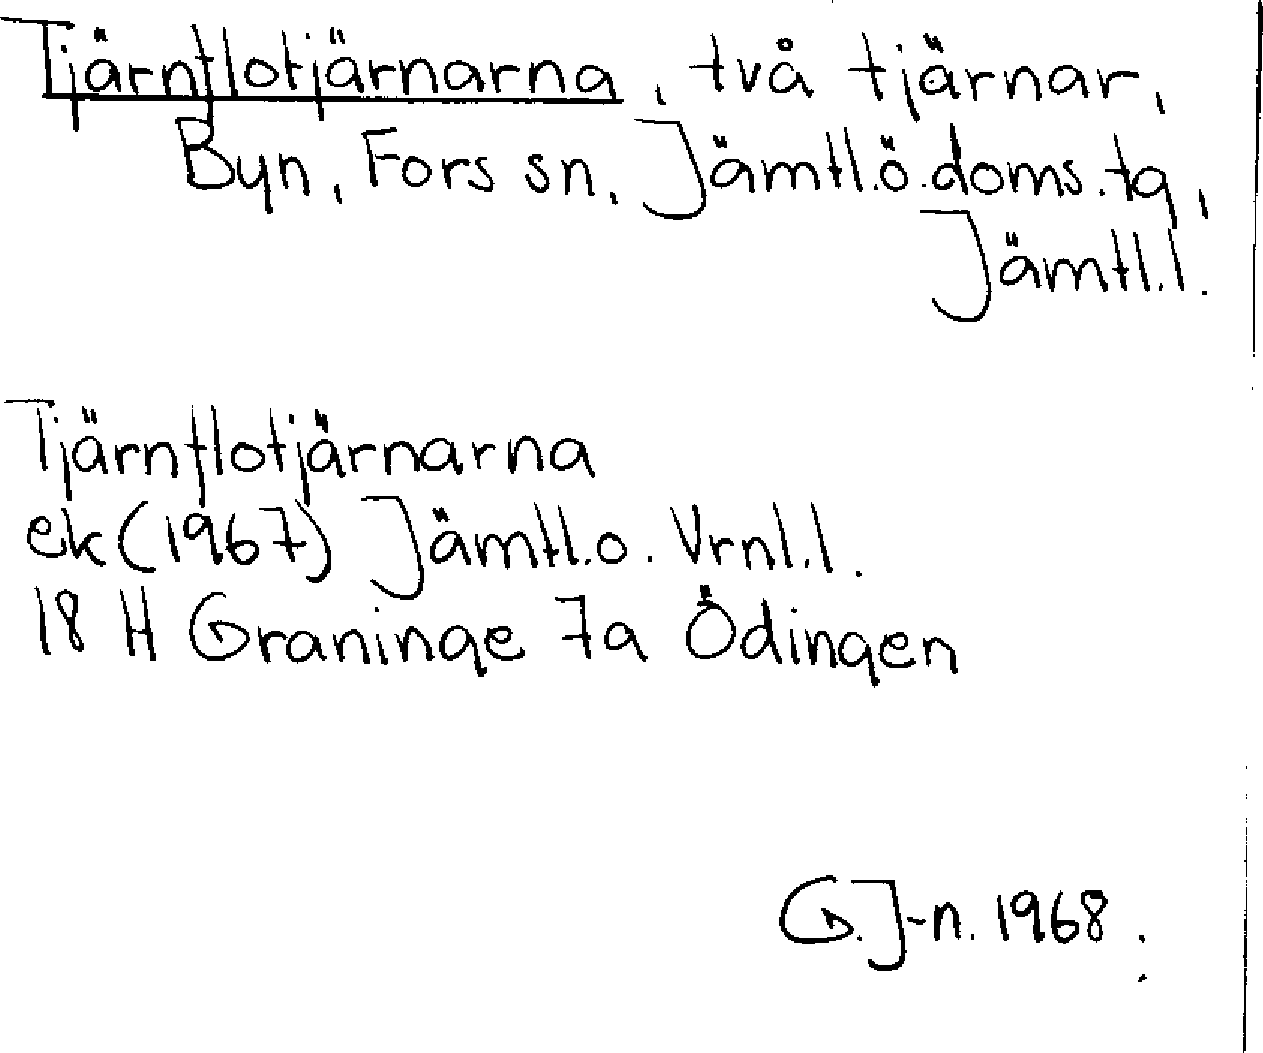 Tjärnflotjärnarna, två tjärnar,
Byn, Fors sn, Jämtl.ö.doms.tg,
Jämtl.l.
Tjärnflotjärnarna
ek (1967) Jämtl.o. Vrnl.l.
18 H Graninge 7a Ödingen
G.J-n. 1968.